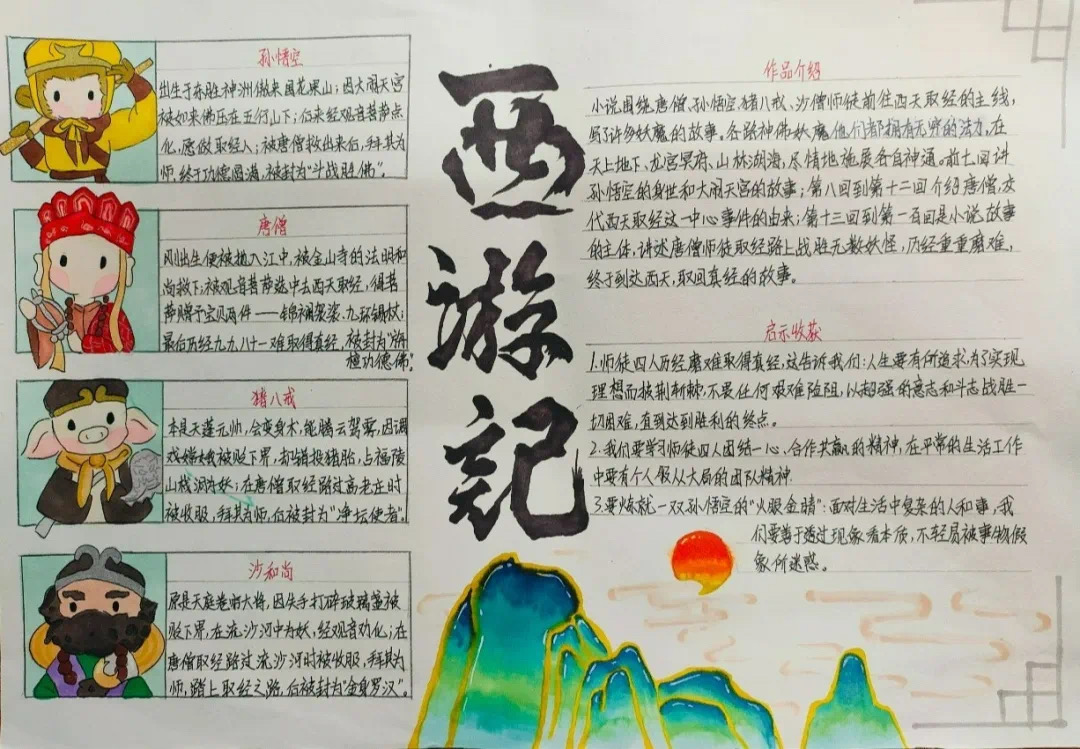 孙悟空
出生于东胜神洲傲来国花果山；因大闹天宫
被如来佛压在五行山下；后来经观音菩萨点
化，愿做取经人；被唐僧救出来后，拜其为
师，终于功德圆满，被封为“斗战胜佛”。
唐僧
刚出生便被抛入江中，被金山寺的法明和
尚救下；被观音菩萨选中去西天取经，得菩
萨赐予宝贝两件——锦襕袈裟、九环锡杖；
最后历经九九八十一难取得真经，被封为“旃
檀功德佛”。
猪八戒
本是天蓬元帅，会变身术，能腾云驾雾，因调
戏嫦娥被贬下界，却错投猪胎，占福陵
山栈洞为妖；在唐僧取经路过高老庄时
被收服，拜其为师，后被封为“净坛使者”。
沙和尚
原是天庭卷帘大将，因失手打碎玻璃盏被
贬下界，在流沙河中为妖，经观音劝化；在
唐僧取经路过流沙河时被收服，拜其为
师，踏上取经之路，后被封为“金身罗汉”。
西游记
作品介绍
小说围绕唐僧、孙悟空、猪八戒、沙僧师徒前往西天取经的主线，
写了许多妖魔的故事。各路神佛妖魔，他们都拥有无穷的法力，在
天上地下、龙宫冥府、山林湖海，尽情地施展各自神通。前七回讲
孙悟空的身世和大闹天宫的故事；第八回到第十二回介绍唐僧，交
代西天取经这一中心事件的由来；第十三回到第一百回是小说故事
的主体，讲述唐僧师徒取经路上战胜无数妖怪，历经重重磨难，
终于到达西天，取回真经的故事。
启示收获
1.师徒四人历经磨难取得真经，这告诉我们：人生要有所追求，为了实现
理想而披荆斩棘，不畏任何艰难险阻，以超强的意志和斗志战胜一
切困难，直到达到胜利的终点。
2.我们要学习师徒四人团结一心、合作共赢的精神，在平常的生活工作
中要有个人服从大局的团队精神.
3.要炼就一双孙悟空的“火眼金睛”：面对生活中复杂的人和事，我
们要善于透过现象看本质，不轻易被事物假
象所迷惑。